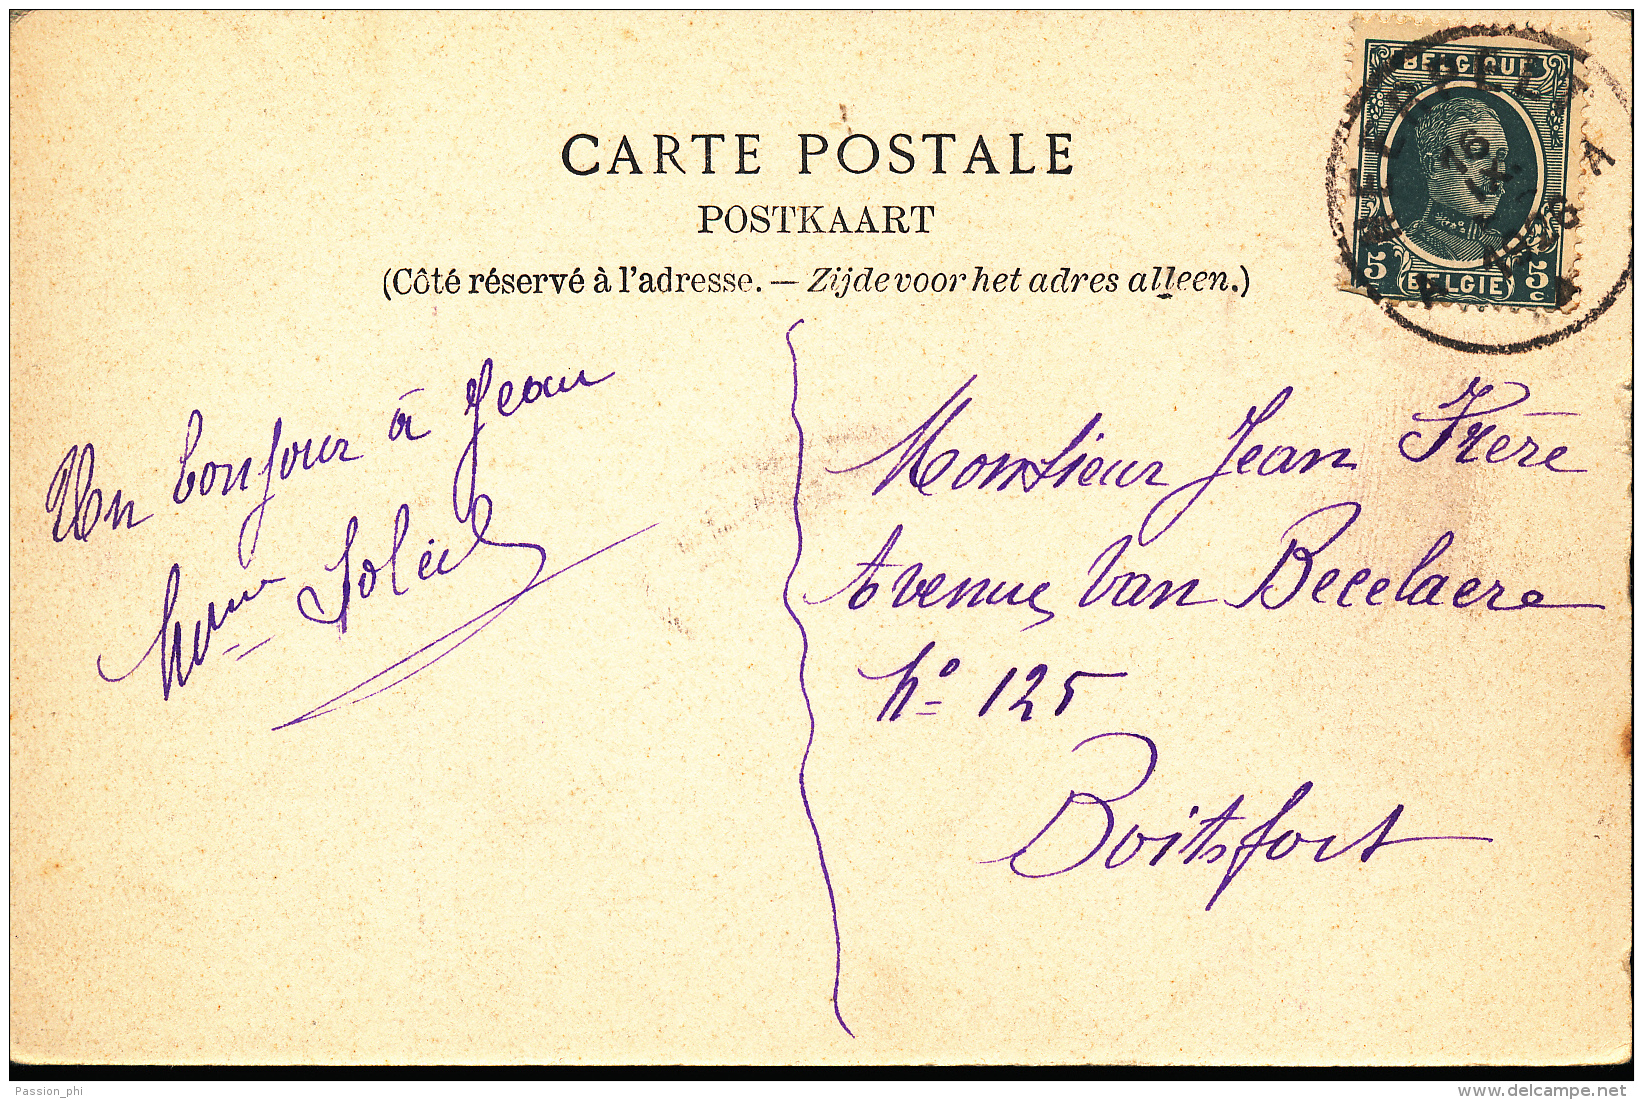 CARTE POSTALE
POSTKAART
(Côté réservé à l'adresse. — Zijde voor het adres alleen.)
BELGIQUE
5 c BELGIE 5 c
Un bonjour à Jean
Monsieur Jean Frère
Avenue Van Becelaere
No 125
Boitsfort
Passion_phi
delcampe.net